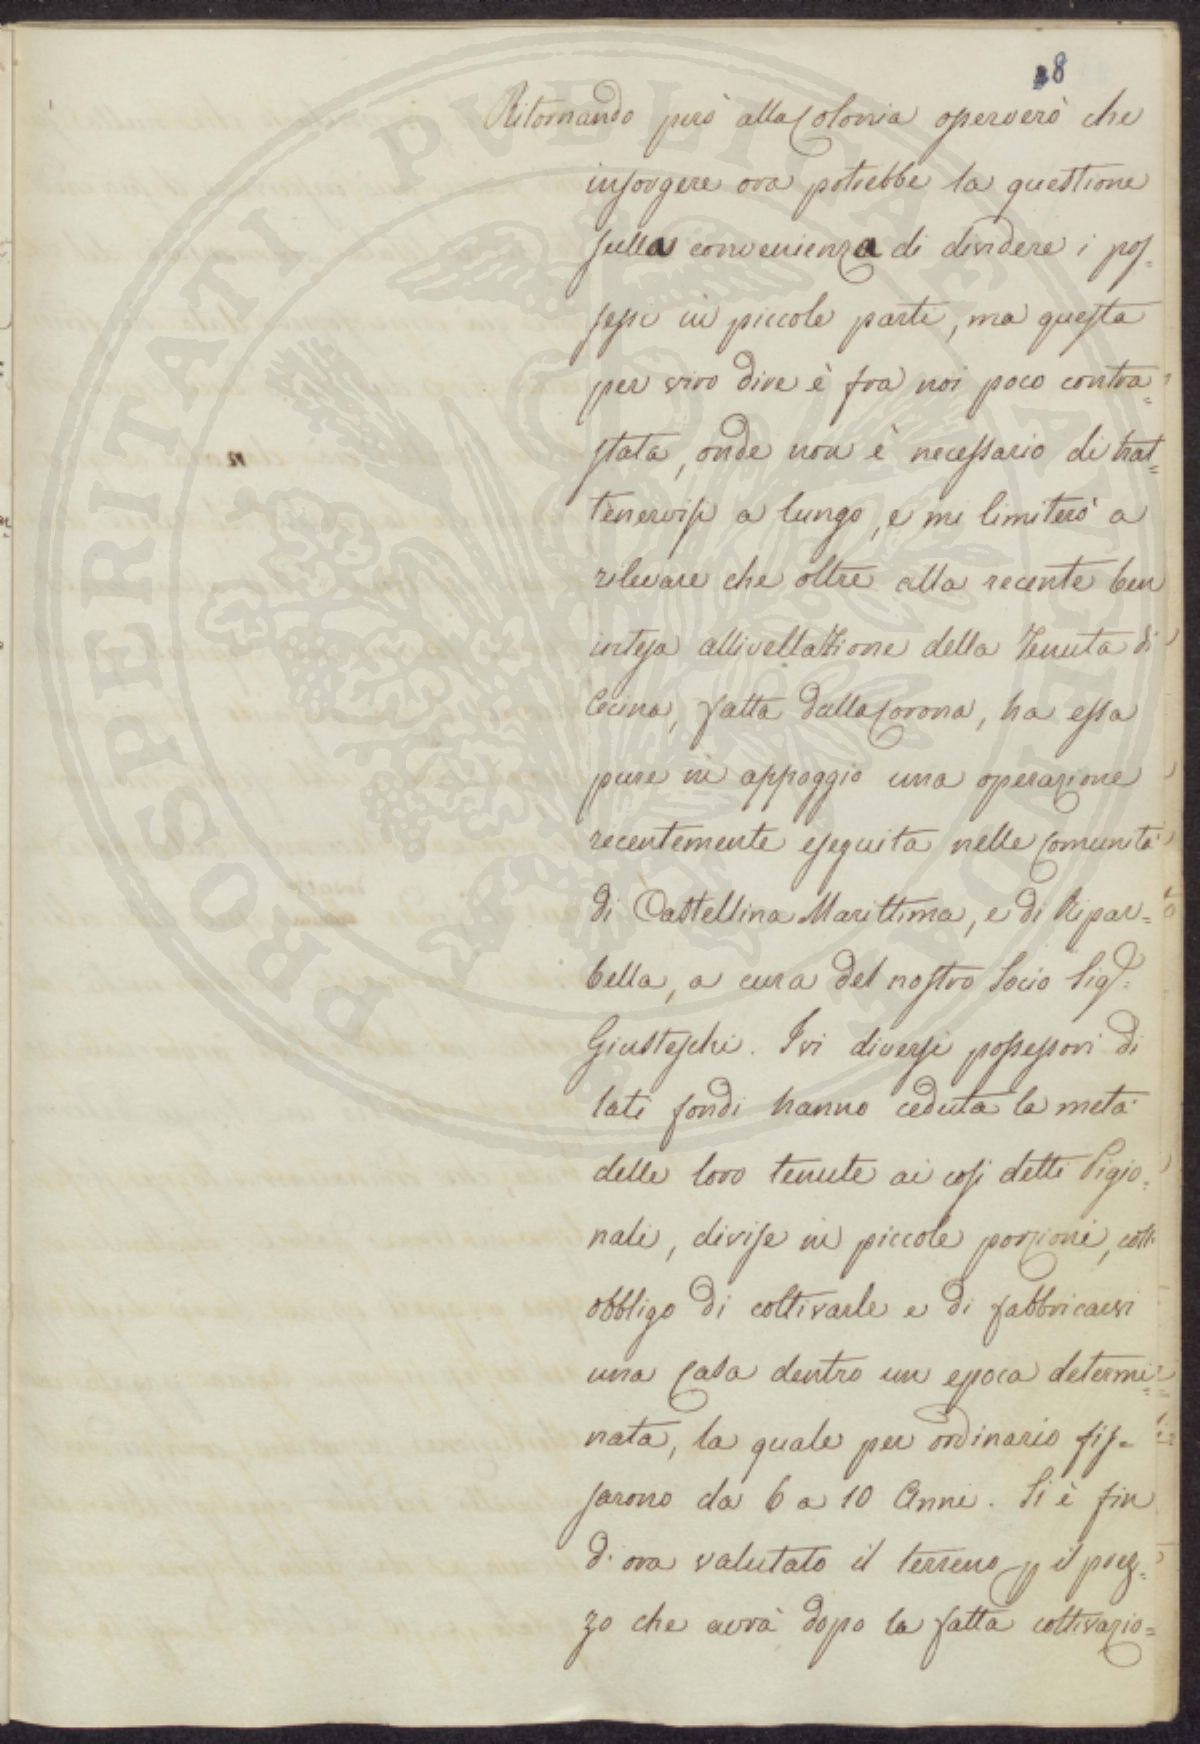 28
Ritornando però alla Colonia osserverò che
insorgere ora potrebbe la questione
sulla convenienza di dividere i pos=
sessi in piccole parti, ma questa
per vero dire è fra noi poco contra=
stata, onde non è necessario di trat=
tenervisi a lungo, e mi limiterò a
rilevare che oltre alla recente ben
intesa allivellazione della Tenuta di
Cecina, fatta dalla Corona, ha essa
pure in appoggio una operazione
recentemente eseguita nelle Comunità
di Castellina Marittima, e di Ripar=
bella, a cura del nostro Socio Sigr.
Giusteschi. Ivi diversi possessori di
lati fondi hanno ceduta la metà
delle loro tenute ai così detti Pigio=
nali, divise in piccole porzioni, coll'
obbligo di coltivarle e di fabbricarvi
una Casa dentro un epoca determi=
nata, la quale per ordinario fis=
sarono da 6 a 10 Anni. Si è fin
d'ora valutato il terreno p il prez=
zo che avrà dopo la fatta coltivazio=
PROSPERITATI PVBLICAE AVGENDAE